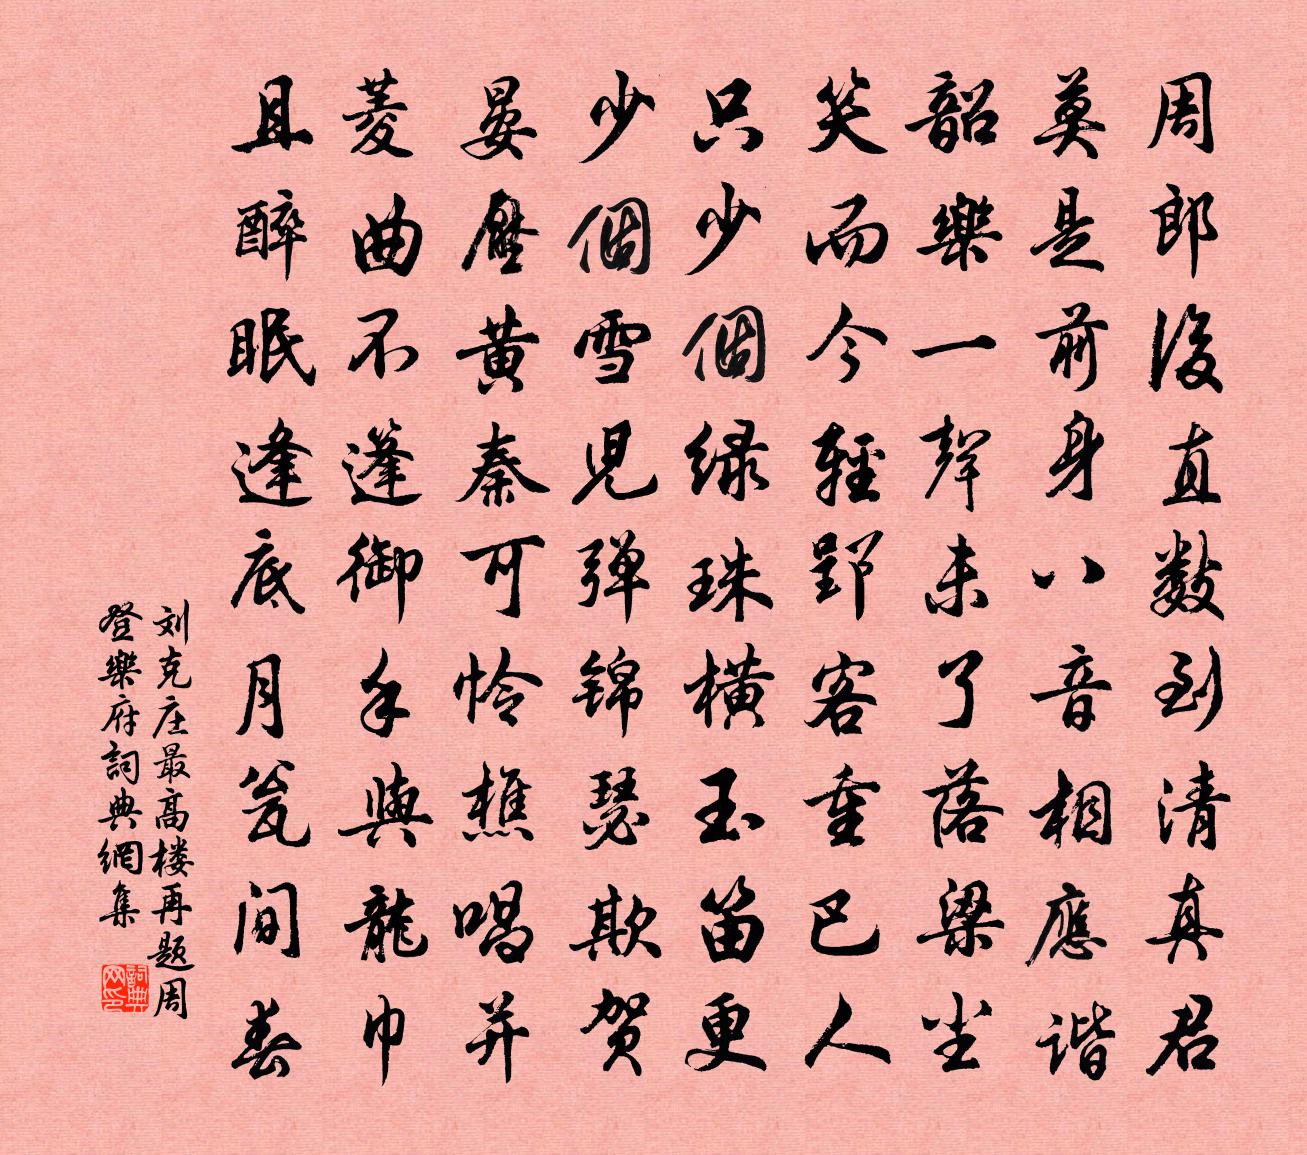 周郎後直數到清真君
莫是前身八音相應谐
韶樂一聲未了落梁尘
笑而今輕郢客重巴人
只少個绿珠橫玉笛更
少個雪兒弹锦瑟欺贺
晏壓黃秦可怜樵唱并
菱曲不篷御手與龍巾
且醉眠逢底月瓮間春
刘克庄最高楼再题周
登樂府詞典網集
詞典网印